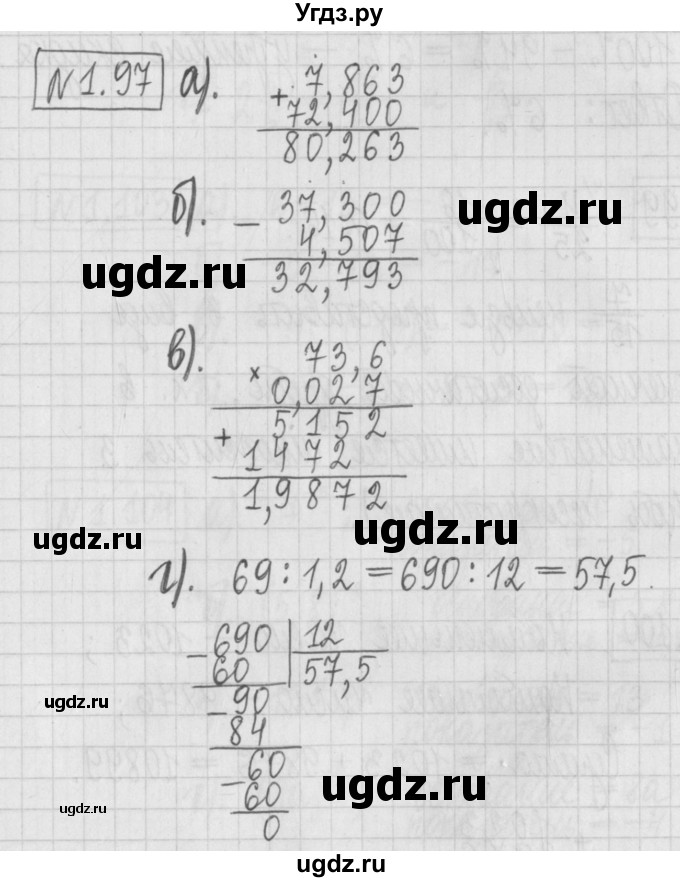 Угдз.ру
№1.97 а).
+ 7,863
72,400
80,263
б).
− 37,300
4,507
32,793
ugdz.ru
ugdz.ru
в).
× 73,6
0,027
+ 5152
1472
1,9872
ugdz.ru
ugdz.ru
г). 69 : 1,2 = 690 : 12 = 57,5.
− 690 | 12
60 57,5
− 90
84
− 60
60
0
ugdz.ru
ugdz.ru
ugdz.ru
ugdz.ru